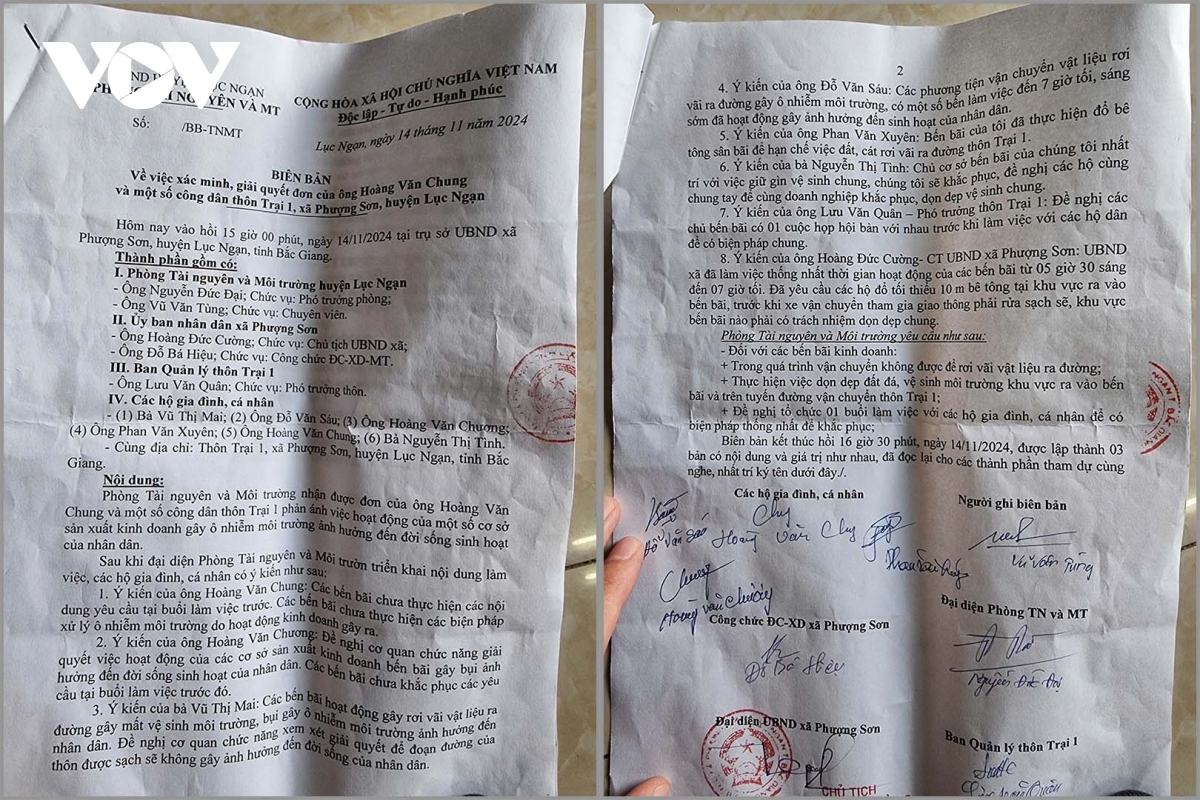 VOV
UBND HUYỆN LỤC NGẠN
PHÒNG TÀI NGUYÊN VÀ MT
CỘNG HÒA XÃ HỘI CHỦ NGHĨA VIỆT NAM
Độc lập - Tự do - Hạnh phúc
Số: /BB-TNMT
Lục Ngạn, ngày 14 tháng 11 năm 2024
BIÊN BẢN
Về việc xác minh, giải quyết đơn của ông Hoàng Văn Chung
và một số công dân thôn Trại 1, xã Phượng Sơn, huyện Lục Ngạn
Hôm nay vào hồi 15 giờ 00 phút, ngày 14/11/2024 tại trụ sở UBND xã
Phượng Sơn, huyện Lục Ngạn, tỉnh Bắc Giang.
Thành phần gồm có:
I. Phòng Tài nguyên và Môi trường huyện Lục Ngạn
- Ông Nguyễn Đức Đại; Chức vụ: Phó trưởng phòng;
- Ông Vũ Văn Tùng; Chức vụ: Chuyên viên.
II. Ủy ban nhân dân xã Phượng Sơn
- Ông Hoàng Đức Cường; Chức vụ: Chủ tịch UBND xã;
- Ông Đỗ Bá Hiệu; Chức vụ: Công chức ĐC-XD-MT.
III. Ban Quản lý thôn Trại 1
- Ông Lưu Văn Quân; Chức vụ: Phó trưởng thôn.
IV. Các hộ gia đình, cá nhân
- (1) Bà Vũ Thị Mai; (2) Ông Đỗ Văn Sáu; (3) Ông Hoàng Văn Chương;
(4) Ông Phan Văn Xuyên; (5) Ông Hoàng Văn Chung; (6) Bà Nguyễn Thị Tình.
- Cùng địa chỉ: Thôn Trại 1, xã Phượng Sơn, huyện Lục Ngạn, tỉnh Bắc
Giang.
Nội dung:
Phòng Tài nguyên và Môi trường nhận được đơn của ông Hoàng Văn
Chung và một số công dân thôn Trại 1 phản ánh việc hoạt động của một số cơ sở
sản xuất kinh doanh gây ô nhiễm môi trường ảnh hưởng đến đời sống sinh hoạt
của nhân dân.
Sau khi đại diện Phòng Tài nguyên và Môi trườn triển khai nội dung làm
việc, các hộ gia đình, cá nhân có ý kiến như sau:
1. Ý kiến của ông Hoàng Văn Chung: Các bến bãi chưa thực hiện các nội
dung yêu cầu tại buổi làm việc trước. Các bến bãi chưa thực hiện các biện pháp
xử lý ô nhiễm môi trường do hoạt động kinh doanh gây ra.
2. Ý kiến của ông Hoàng Văn Chương: Đề nghị cơ quan chức năng giải
quyết việc hoạt động của các cơ sở sản xuất kinh doanh bến bãi gây bụi ảnh
hưởng đến đời sống sinh hoạt của nhân dân. Các bến bãi chưa khắc phục các yêu
cầu tại buổi làm việc trước đó.
3. Ý kiến của bà Vũ Thị Mai: Các bến bãi hoạt động gây rơi vãi vật liệu ra
đường gây mất vệ sinh môi trường, bụi gây ô nhiễm môi trường ảnh hưởng đến
nhân dân. Đề nghị cơ quan chức năng xem xét giải quyết để đoạn đường của
thôn được sạch sẽ không gây ảnh hưởng đến đời sống của nhân dân.
2
4. Ý kiến của ông Đỗ Văn Sáu: Các phương tiện vận chuyển vật liệu rơi
vãi ra đường gây ô nhiễm môi trường, có một số bến làm việc đến 7 giờ tối, sáng
sớm đã hoạt động gây ảnh hưởng đến sinh hoạt của nhân dân.
5. Ý kiến của ông Phan Văn Xuyên: Bến bãi của tôi đã thực hiện đổ bê
tông sân bãi để hạn chế việc đất, cát rơi vãi ra đường thôn Trại 1.
6. Ý kiến của bà Nguyễn Thị Tình: Chủ cơ sở bến bãi của chúng tôi nhất
trí với việc giữ gìn vệ sinh chung, chúng tôi sẽ khắc phục, đề nghị các hộ cùng
chung tay để cùng doanh nghiệp khắc phục, dọn dẹp vệ sinh chung.
7. Ý kiến của ông Lưu Văn Quân – Phó trưởng thôn Trại 1: Đề nghị các
chủ bến bãi có 01 cuộc họp hội bàn với nhau trước khi làm việc với các hộ dân
để có biện pháp chung.
8. Ý kiến của ông Hoàng Đức Cường- CT UBND xã Phượng Sơn: UBND
xã đã làm việc thống nhất thời gian hoạt động của các bến bãi từ 05 giờ 30 sáng
đến 07 giờ tối. Đã yêu cầu các hộ đổ tối thiểu 10 m bê tông tại khu vực ra vào
bến bãi, trước khi xe vận chuyển tham gia giao thông phải rửa sạch sẽ, khu vực
bến bãi nào phải có trách nhiệm dọn dẹp chung.
Phòng Tài nguyên và Môi trường yêu cầu như sau:
- Đối với các bến bãi kinh doanh:
+ Trong quá trình vận chuyển không được để rơi vãi vật liệu ra đường;
+ Thực hiện việc dọn dẹp đất đá, vệ sinh môi trường khu vực ra vào bến
bãi và trên tuyến đường vận chuyển thôn Trại 1;
+ Đề nghị tổ chức 01 buổi làm việc với các hộ gia đình, cá nhân để có
biện pháp thống nhất để khắc phục;
Biên bản kết thúc hồi 16 giờ 30 phút, ngày 14/11/2024, được lập thành 03
bản có nội dung và giá trị như nhau, đã đọc lại cho các thành phần tham dự cùng
nghe, nhất trí ký tên dưới đây./.
Các hộ gia đình, cá nhân
Người ghi biên bản
Đỗ Văn Sáu
Hoàng Văn Chung
Vũ Văn Tùng
Hoàng Văn Chương
Đại diện Phòng TN và MT
Công chức ĐC-XD xã Phượng Sơn
Đỗ Bá Hiệu
Nguyễn Đức Đại
Đại diện UBND xã Phượng Sơn
Ban Quản lý thôn Trại 1
CHỦ TỊCH
Lưu Văn Quân